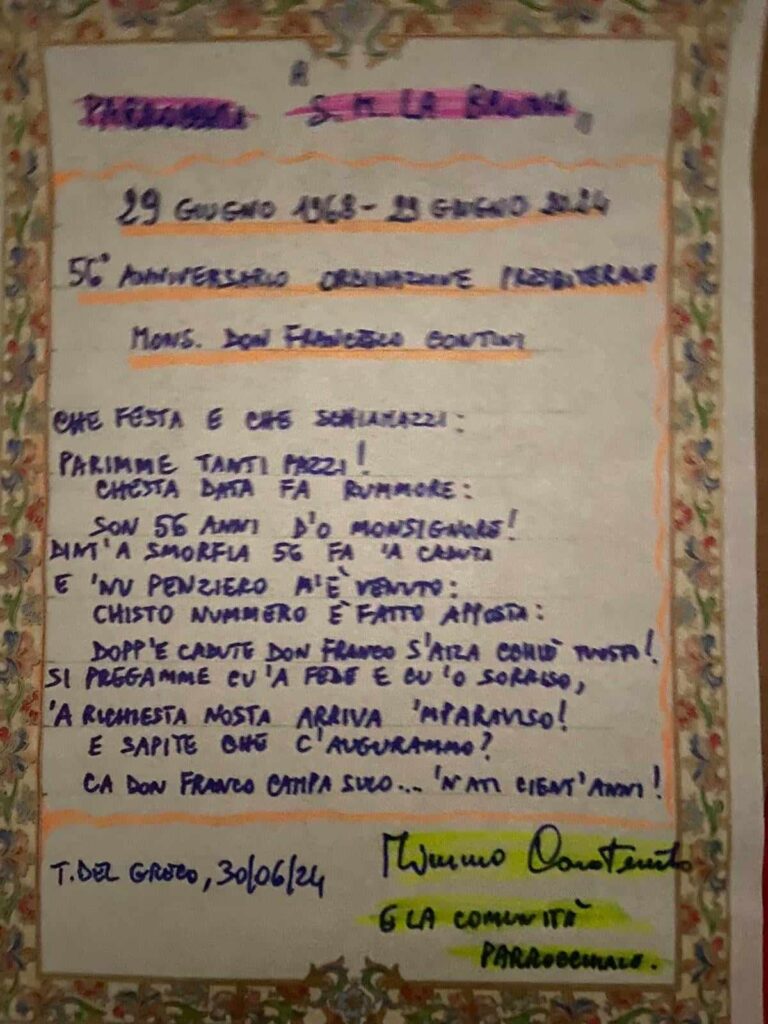 PARROCCHIA S. M. LA BRUNA,
29 GIUGNO 1968 - 29 GIUGNO 2024
56° ANNIVERSARIO ORDINAZIONE PRESBITERALE
MONS. DON FRANCESCO CONTINI
CHE FESTA E CHE SCHIAMAZZI:
PARIMME TANTI PAZZI!
CHESTA DATA FA RUMMORE:
SON 56 ANNI D'O MONSIGNORE!
DINT'A SMORFIA 56 FA 'A CADUTA
E 'NU PENZIERO M'È VENUTO:
CHISTO NUMMERO È FATTO APPOSTA:
DOPP'E CADUTE DON FRANCO S'AIZA CCHIÙ TUOSTO!
SI PREGAMME CU 'A FEDE E CU 'O SORRISO,
'A RICHIESTA NOSTA ARRIVA 'MPARAVISO!
E SAPITE CHE C'AUGURAMMO?
CA DON FRANCO CAMPA SULO... 'N'ATI CIENT'ANNI!
T. DEL GRECO, 30/06/24
Mimmo
E LA COMUNITÀ
PARROCCHIALE.